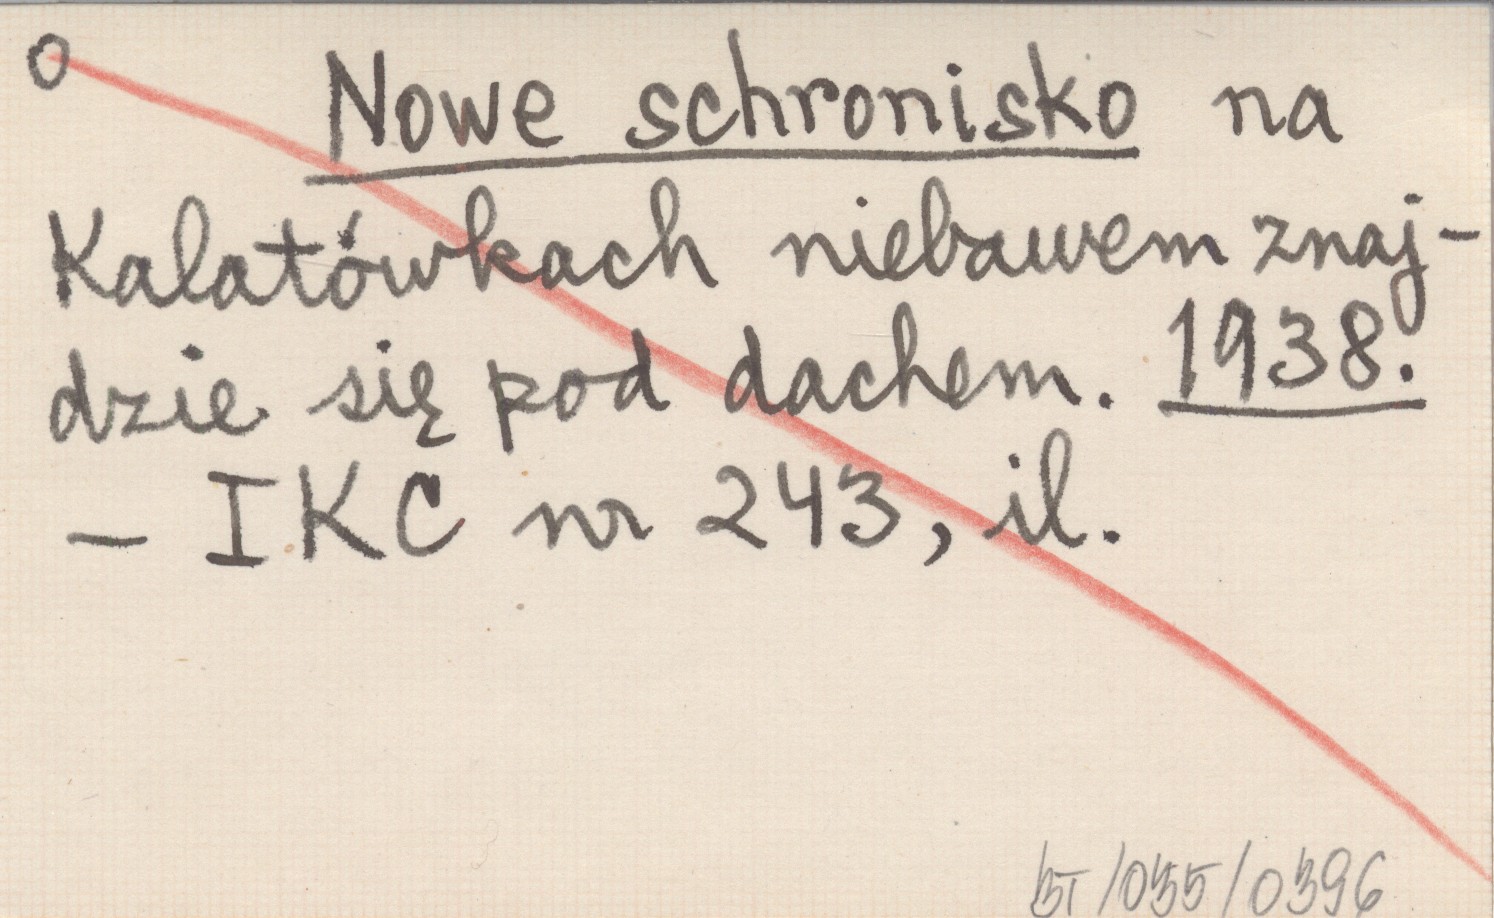 O
Nowe schronisko na
Kalatówkach niebawem znaj-
dzie się pod dachem. 1938.
- IKC nr 243, il.
BT/035/0396